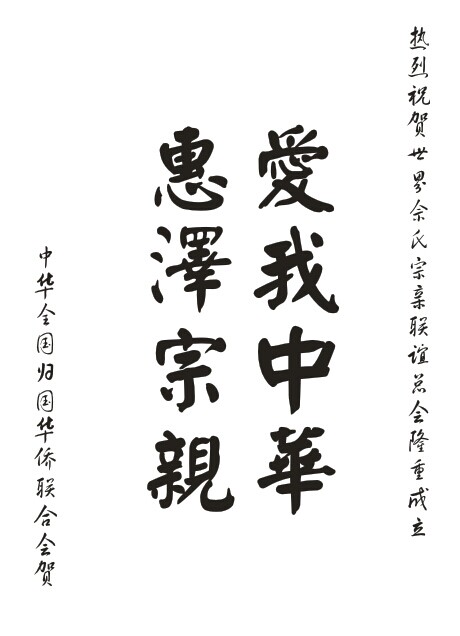 热烈祝贺世界余氏宗亲联谊总会隆重成立
愛我中華
惠澤宗親
中华全国归国华侨联合会贺